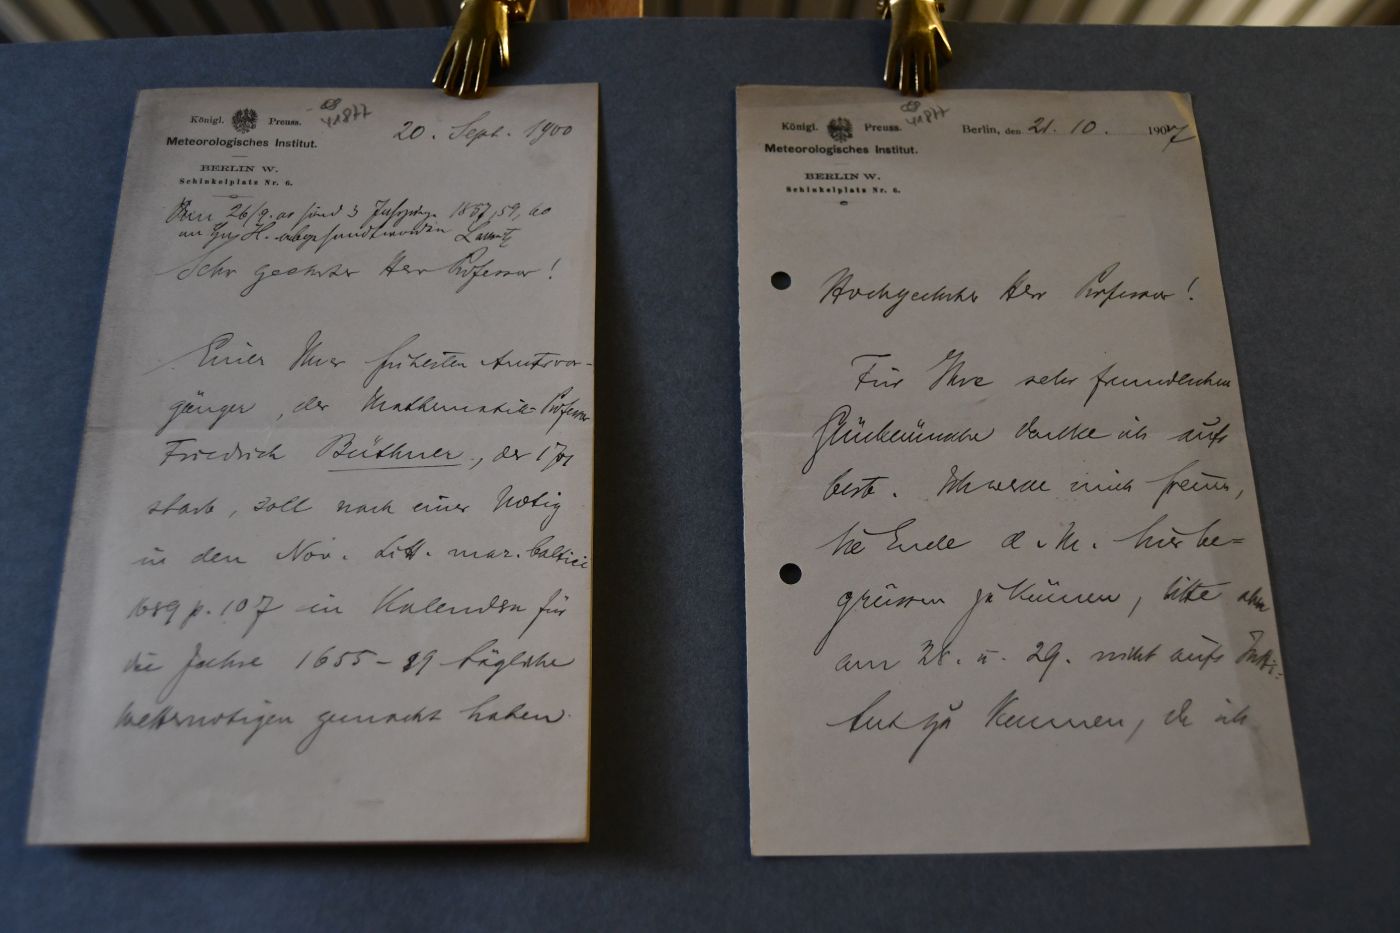 Königl. Preuss.
Meteorologisches Institut.
BERLIN W.
Schinkelplatz Nr. 6.
41877
20. Sept. 1900
26/9. 00 sind 3 Jahrgänge 1657, 59, 60
an H. abgesandt worden
Sehr geehrter Herr Professor!
Einer Ihrer frühesten Amtsvor-
gänger, der Mathematik-Professor
Friedrich Büthner, der 1701
starb, soll nach einer Notiz
in den Nov. Litt. mar. baltici
1689 p. 107 in Kalendern für
die Jahre 1655-89 tägliche
Wetternotizen gemacht haben.
Königl. Preuss.
Meteorologisches Institut.
BERLIN W.
Schinkelplatz Nr. 6.
41877
Berlin, den 21. 10. 1907
Hochgeehrter Herr Professor!
Für Ihre sehr freundlichen
Glückwünsche danke ich aufs
beste. Ich werde mich freuen,
Sie Ende d. M. hier be=
grüssen zu können, bitte aber
am 28. u. 29. nicht aufs Insti-
tut zu kommen, da ich